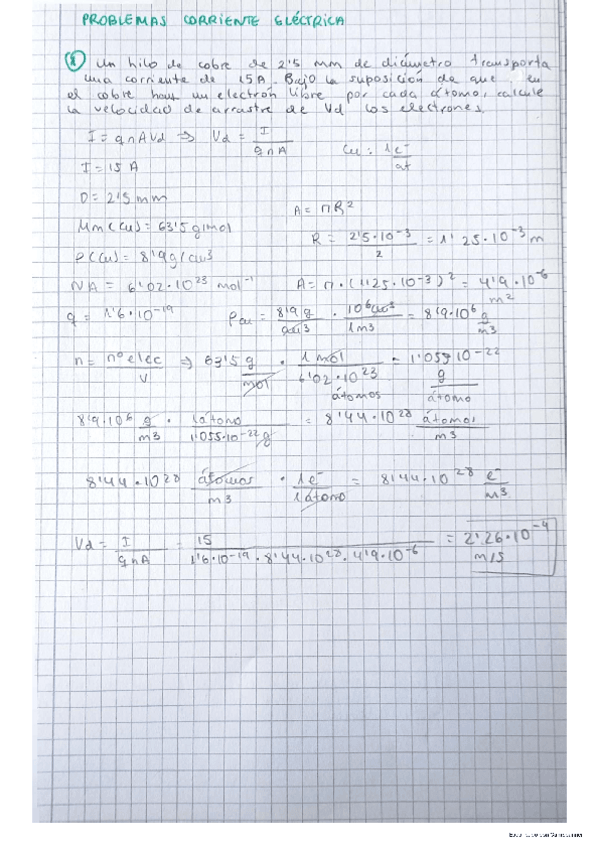 PROBLEMAS CORRIENTE ELÉCTRICA
1 Un hilo de cobre de 2'5 mm de diámetro transporta
una corriente de 15A. Bajo la suposición de que en
el cobre hay un electrón libre por cada átomo, calcule
la velocidad de arrastre de Vd los electrones.
I = q n A Vd ⇒ Vd = I / q n A
Cu: 1e⁻ / at
I = 15 A
D = 2'5 mm
A = π R²
Mm (Cu) = 63'5 g/mol
R = 2'5·10⁻³ / 2 = 1'25·10⁻³ m
ρ(Cu) = 8'9 g/cm³
NA = 6'02·10²³ mol⁻¹
A = π·(1'25·10⁻³)² = 4'9·10⁻⁶ m²
q = 1'6·10⁻¹⁹
ρcu = 8'9 g / cm³ · 10⁶cm³ / 1m³ = 8'9·10⁶ g / m³
n = nº elec / V ⇒ 63'5 g / mol · 1 mol / 6'02·10²³ átomos = 1'055·10⁻²² g / átomo
8'9·10⁶ g / m³ · 1átomo / 1'055·10⁻²² g = 8'44·10²⁸ átomos / m³
8'44·10²⁸ átomos / m³ · 1e⁻ / 1átomo = 8'44·10²⁸ e⁻ / m³
Vd = I / q n A = 15 / 1'6·10⁻¹⁹·8'44·10²⁸·4'9·10⁻⁶ = 2'26·10⁻⁴ m/s